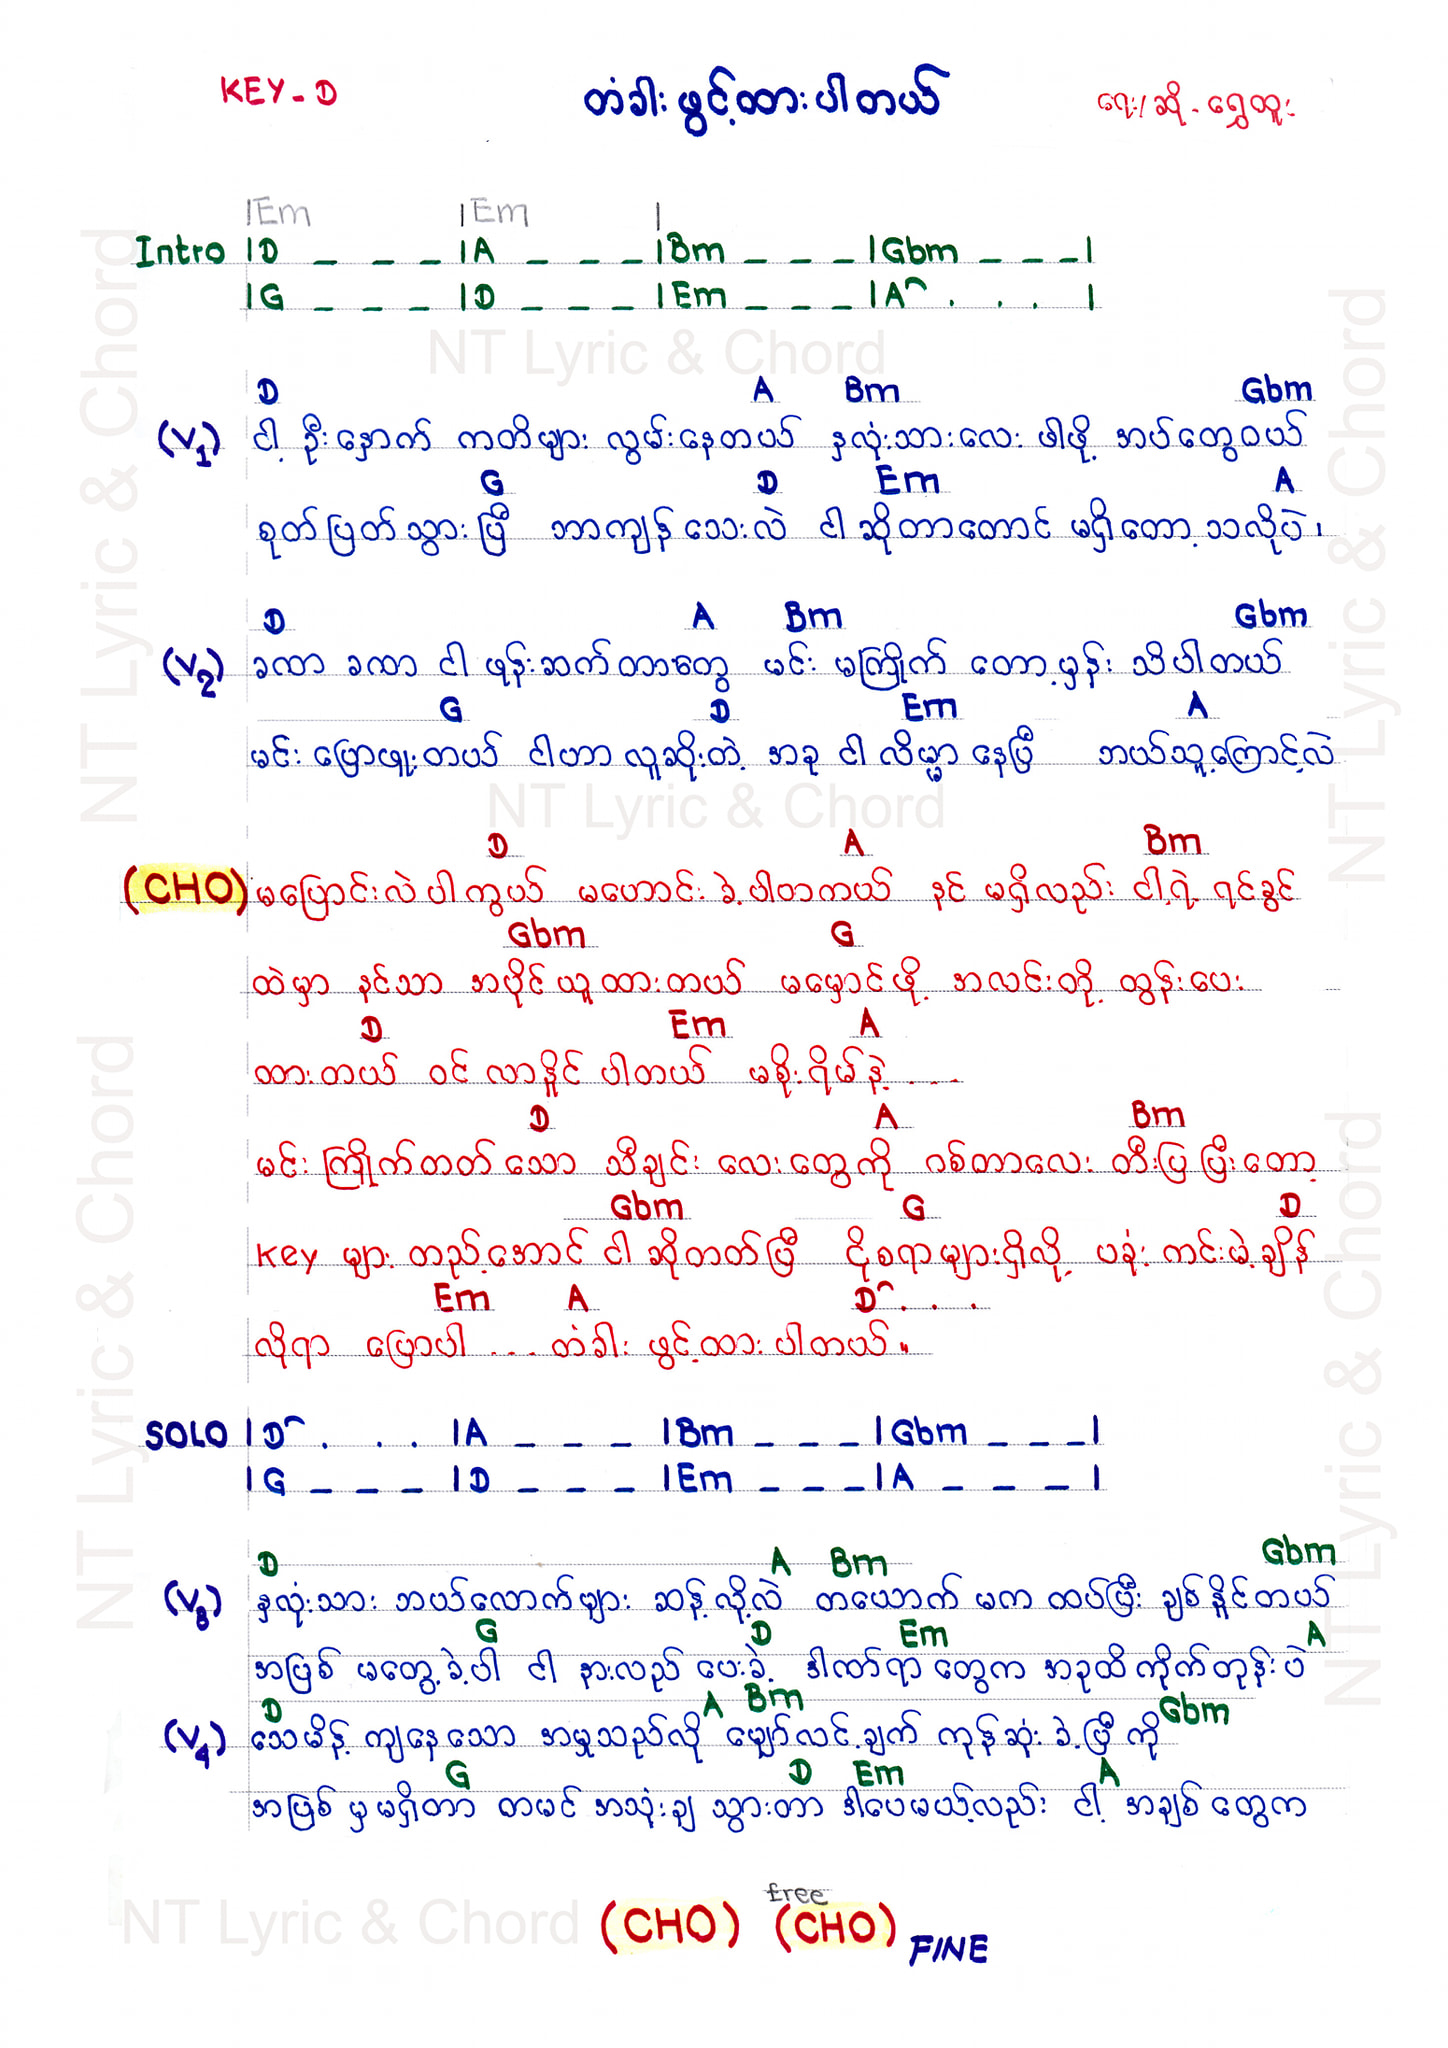 KEY - D
တံခါးဖွင့်ထားပါတယ်
ရေး/ဆို - ရွှေထူး
|Em |Em |
Intro |D _ _ _ |A _ _ _ |Bm _ _ _ |Gbm _ _ _|
|G _ _ _ |D _ _ _ |Em _ _ _ |A^ . . . |
NT Lyric & Chord
D A Bm Gbm
(V1) ငါ့ ဦးနှောက် ကတိများ လွမ်းနေတယ် နှလုံးသားလေး ဖါဖို့ အပ်တွေဝယ်
G D Em A
စုတ်ပြတ်သွားပြီ ဘာကျန်သေးလဲ ငါဆိုတာတောင် မရှိတော့သလိုပဲ၊
D A Bm Gbm
(V2) ခဏ ခဏ ငါ ဖုန်းဆက်တာတွေ မင်း မကြိုက် တော့မှန်း သိပါတယ်
G D Em A
မင်း ပြောဖူးတယ် ငါဟာ လူဆိုးတဲ့ အခု ငါ လိမ္မာ နေပြီ ဘယ်သူ့ကြောင့်လဲ
NT Lyric & Chord
D A Bm
(CHO) မပြောင်းလဲပါကွယ် မဟောင်းခဲ့ပါတကယ် နင် မရှိလည်း ငါ့ရဲ့ ရင်ခွင်
Gbm G
ထဲမှာ နင်သာ အပိုင်ယူထားတယ် မမှောင်ဖို့ အလင်းတို့ ထွန်းပေး
D Em A
ထားတယ် ဝင် လာနိုင် ပါတယ် မစိုးရိမ်နဲ့ ....
D A Bm
မင်း ကြိုက်တတ်သော သီချင်း လေးတွေကို ဂစ်တာလေး တီးပြ ပြီးတော့
Gbm G D
Key များ တည့်အောင် ငါ ဆိုတတ်ပြီ ငိုစရာများရှိလို့ ပခုံး ကင်းမဲ့ချိန်
Em A D^ . . .
လိုရာ ပြောပါ ... တံခါး ဖွင့်ထားပါတယ်။
SOLO |D^ . . . |A _ _ _ |Bm _ _ _ |Gbm _ _ _|
|G _ _ _ |D _ _ _ |Em _ _ _ |A _ _ _ |
D A Bm Gbm
(V3) နှလုံးသား ဘယ်လောက်များ ဆန့်လို့လဲ တယောက် မက ထပ်ပြီး ချစ်နိုင်တယ်
G D Em A
အဖြစ် မတွေ့ခဲ့ပါ ငါ နားလည် ပေးခဲ့ ဒါဏ်ရာ တွေက အခုထိ ကိုက်တုန်းပဲ
D A Bm Gbm
(V4) သေမိန့် ကျနေသော အမှုသည်လို မျှော်လင့်ချက် ကုန်ဆုံး ခဲ့ပြီကို
G D Em A
အဖြစ် မှ မရှိတာ တမင် အသုံးချ သွားတာ ဒါပေမယ့်လည်း ငါ့ အချစ် တွေက
free
NT Lyric & Chord
(CHO) (CHO) FINE
NT Lyric & Chord
NT Lyric & Chord
NT Lyric & Chord
NT Lyric & Chord